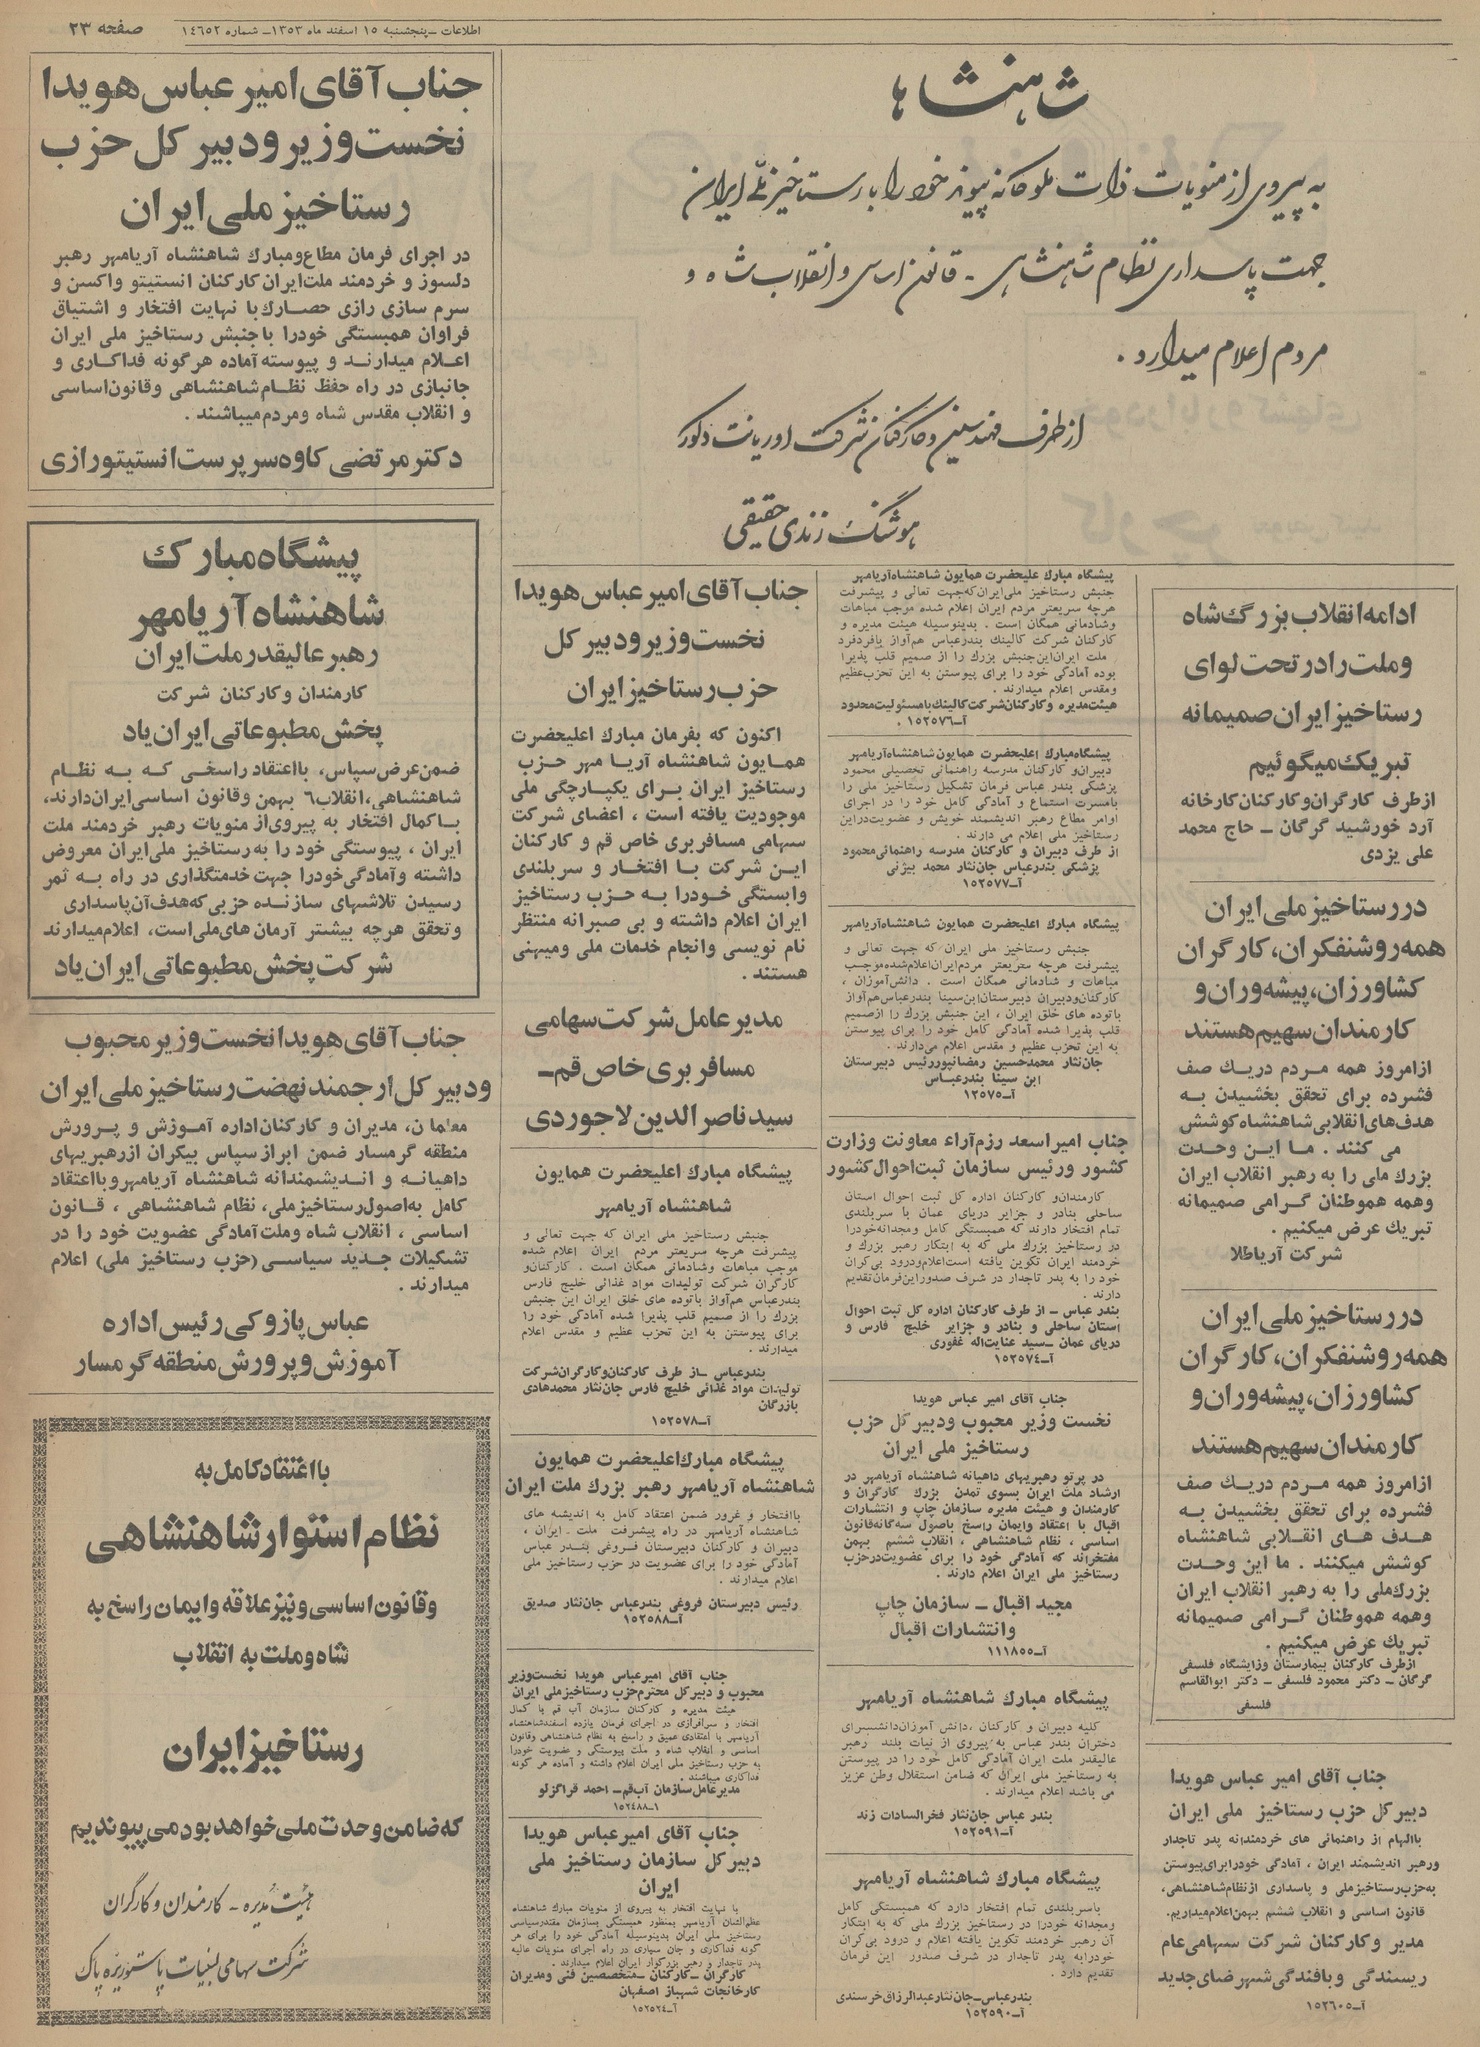 اطلاعات ـ پنجشنبه ۱۵ اسفند ماه ۱۳۵۳ـ شماره ۱۴۶۵۲
صفحه ۲۳
شاهنشاها
به پیروی از منویات ذات ملوکانه پیوند خود را با رستاخیز ملی ایران
جهت پاسداری نظام شاهنشاهی - قانون اساسی و انقلاب شاه و
مردم اعلام میدارد .
از طرف مهندسین و کارکنان شرکت اوریانت دکور
هوشنگ زندی حقیقی
ادامه انقلاب بزرگ شاه
وملت را در تحت لوای
رستاخیز ایران صمیمانه
تبریک میگوئیم
از طرف کارگران و کارکنان کارخانه
آرد خورشید گرگان ـ حاج محمد
علی یزدی
در رستاخیز ملی ایران
همه روشنفکران، کارگران
کشاورزان، پیشه‌وران و
کارمندان سهیم هستند
از امروز همه مردم در یک صف
فشرده برای تحقق بخشیدن به
هدف‌های انقلابی شاهنشاه کوشش
می کنند . ما این وحدت
بزرگ ملی را به رهبر انقلاب ایران
وهمه هموطنان گرامی صمیمانه
تبریک عرض میکنیم .
شرکت آریاطلا
در رستاخیز ملی ایران
همه روشنفکران، کارگران
کشاورزان، پیشه‌وران و
کارمندان سهیم هستند
از امروز همه مردم در یک صف
فشرده برای تحقق بخشیدن به
هدف های انقلابی شاهنشاه
کوشش میکنند . ما این وحدت
بزرگ ملی را به رهبر انقلاب ایران
وهمه هموطنان گرامی صمیمانه
تبریک عرض میکنیم .
از طرف کارکنان بیمارستان وزایشگاه فلسفی
گرگان ـ دکتر محمود فلسفی ـ دکتر ابوالقاسم
فلسفی
جناب آقای امیر عباس هویدا
دبیر کل حزب رستاخیز ملی ایران
باالهام از راهنمائی های خردمندانه پدر تاجدار
ورهبر اندیشمند ایران ، آمادگی خودرا برای پیوستن
به‌حزب رستاخیز ملی و پاسداری از نظام شاهنشاهی،
قانون اساسی و انقلاب ششم بهمن اعلام میداریم.
مدیر وکارکنان شرکت سهامی عام
ریسندگی و بافندگی شهرضای جدید
آـ۱۵۲۶۰۵
پیشگاه مبارک علیحضرت همایون شاهنشاه آریامهر
جنبش رستاخیز ملی ایران که‌جهت تعالی و پیشرفت
هرچه سریعتر مردم ایران اعلام شده موجب مباهات
وشادمانی همگان است . بدینوسیله هیئت مدیره و
کارکنان شرکت کالینک بندرعباس هم‌آواز بافردفرد
ملت ایران‌این‌جنبش بزرگ را از صمیم قلب پذیرا
بوده آمادگی خود را برای پیوستن به این تحزب‌عظیم
ومقدس اعلام میدارند .
هیئت مدیره و کارکنان شرکت کالینک بامسئولیت محدود
آـ۱۵۲۵۷۶ .
پیشگاه مبارک اعلیحضرت همایون شاهنشاه آریامهر
دبیران‌و کارکنان مدرسه راهنمائی تحصیلی محمود
پزشکی بندر عباس فرمان تشکیل رستاخیز ملی را
بامسرت استماع و آمادگی کامل خود را در اجرای
اوامر مطاع رهبر اندیشمند خویش و عضویت‌دراین
رستاخیز ملی اعلام می دارند .
از طرف دبیران و کارکنان مدرسه راهنمائی محمود
پزشکی بندرعباس جان‌نثار محمد بیژنی
آـ۱۵۲۵۷۷
پیشگاه مبارک اعلیحضرت همایون شاهنشاه آریامهر
جنبش رستاخیز ملی ایران که جهت تعالی و
پیشرفت هرچه سریعتر مردم‌ایران‌اعلام‌شده‌موجب
مباهات و شادمانی همگان است . دانش‌آموزان ،
کارکنان‌ودبیران دبیرستان‌ابن‌سینا بندرعباس‌هم‌آواز
باتوده های خلق ایران ، این جنبش بزرگ را ازصمیم
قلب پذیرا شده آمادگی کامل خود را برای پیوستن
به این تحزب عظیم و مقدس اعلام می‌دارند .
جان‌نثار محمدحسین رمضانپور رئیس دبیرستان
ابن سینا بندرعباس
آـ۱۲۵۷۵
جناب امیر اسعد رزم‌آراء معاونت وزارت
کشور ورئیس سازمان ثبت احوال کشور
کارمندان‌و کارکنان اداره کل ثبت احوال استان
ساحلی بنادر و جزایر دریای عمان با سربلندی
تمام افتخار دارند که همبستگی کامل ومجدانه خودرا
در رستاخیز بزرگ ملی که به ابتکار رهبر بزرگ و
خردمند ایران تکوین یافته است‌اعلام‌ودرود بی‌کران
خود را به پدر تاجدار در شرف صدوراین‌فرمان‌تقدیم
دارند .
بندر عباس ـ از طرف کارکنان اداره کل ثبت احوال
استان ساحلی و بنادر و جزایر خلیج فارس و
دریای عمان ـ سید عنایت‌اله غفوری
آـ۱۵۲۵۷۴
جناب آقای امیر عباس هویدا
نخست وزیر محبوب ودبیر کل حزب
رستاخیز ملی ایران
در پرتو رهبریهای داهیانه شاهنشاه آریامهر در
ارشاد ملت ایران بسوی تمدن بزرگ کارگران و
کارمندان و هیئت مدیره سازمان چاپ و انتشارات
اقبال با اعتقاد وایمان راسخ باصول سه‌گانه‌قانون
اساسی ، نظام شاهنشاهی ، انقلاب ششم بهمن
مفتخراند که آمادگی خود را برای عضویت‌درحزب
رستاخیز ملی ایران اعلام دارند .
مجید اقبال ـ سازمان چاپ
وانتشارات اقبال
آـ۱۱۱۸۵۵
پیشگاه مبارک شاهنشاه آریامهر
کلیه دبیران و کارکنان ،دانش آموزان‌دانشسرای
دختران بندر عباس به پیروی از نیات بلند رهبر
عالیقدر ملت ایران آمادگی کامل خود را در پیوستن
به رستاخیز ملی ایران که ضامن استقلال وطن عزیز
می باشد اعلام میدارند .
بندر عباس جان‌نثار فخرالسادات زند
آـ۱۵۲۵۹۱
پیشگاه مبارک شاهنشاه آریامهر
باسربلندی تمام افتخار دارد که همبستگی کامل
ومجدانه خودرا در رستاخیز بزرگ ملی که به ابتکار
آن رهبر خردمند تکوین یافته اعلام و درود بی‌کران
خودرابه پدر تاجدار در شرف صدور این فرمان
تقدیم دارد .
بندرعباس‌ـ‌جان‌نثار عبدالرزاق خرسندی
آـ۱۵۲۵۹۰
جناب آقای امیر عباس هویدا
نخست وزیر و دبیر کل
حزب رستاخیز ایران
اکنون که بفرمان مبارک اعلیحضرت
همایون شاهنشاه آریا مهر حزب
رستاخیز ایران برای یکپارچگی ملی
موجودیت یافته است ، اعضای شرکت
سهامی مسافربری خاص قم و کارکنان
این شرکت با افتخار و سربلندی
وابستگی خودرا به حزب رستاخیز
ایران اعلام داشته و بی صبرانه منتظر
نام نویسی وانجام خدمات ملی ومیهنی
هستند .
مدیر عامل شرکت سهامی
مسافربری خاص قم ـ
سید ناصرالدین لاجوردی
پیشگاه مبارک اعلیحضرت همایون
شاهنشاه آریامهر
جنبش رستاخیز ملی ایران که جهت تعالی و
پیشرفت هرچه سریعتر مردم ایران اعلام شده
موجب مباهات وشادمانی همگان است . کارکنان‌و
کارگران شرکت تولیدات مواد غذائی خلیج فارس
بندرعباس هم‌آواز باتوده های خلق ایران این جنبش
بزرگ را از صمیم قلب پذیرا شده آمادگی خود را
برای پیوستن به این تحزب عظیم و مقدس اعلام
میدارند .
بندرعباس ـ از طرف کارکنان‌وکارگران‌شرکت
تولیدات مواد غذائی خلیج فارس جان‌نثار محمدهادی
بازرگان
آـ۱۵۲۵۷۸
پیشگاه مبارک اعلیحضرت همایون
شاهنشاه آریامهر رهبر بزرگ ملت ایران
باافتخار و غرور ضمن اعتقاد کامل به اندیشه های
شاهنشاه آریامهر در راه پیشرفت ملت ایران ،
دبیران و کارکنان دبیرستان فروغی بندر عباس
آمادگی خود را برای عضویت در حزب رستاخیز ملی
اعلام میدارند .
رئیس دبیرستان فروغی بندرعباس جان‌نثار صدیق
آـ۱۵۲۵۸۸
جناب آقای امیرعباس هویدا نخست‌وزیر
محبوب و دبیر کل محترم‌حزب رستاخیز ملی ایران
هیئت مدیره و کارکنان سازمان آب قم با کمال
افتخار و سرافرازی در اجرای فرمان یازده اسفندشاهنشاه
آریامهر با اعتقادی عمیق و راسخ به نظام شاهنشاهی وقانون
اساسی و انقلاب شاه و ملت پیوستگی و عضویت خودرا
به حزب رستاخیز ملی ایران اعلام داشته و آماده هر گونه
فداکاری میباشند .
مدیرعامل سازمان آب قم ـ احمد قراگزلو
۱ـ۱۵۲۴۸۸
جناب آقای امیرعباس هویدا
دبیر کل سازمان رستاخیز ملی
ایران
با نهایت افتخار به پیروی از منویات مبارک شاهنشاه
عظیم‌الشان آریامهر بمنظور همبستگی بسازمان مقتدرسیاسی
رستاخیز ملی ایران بدینوسیله آمادگی خود را برای هر
گونه فداکاری و جان سپاری در راه اجرای منویات عالیه
پدر تاجدار و رهبر بزرگوار ایران اعلام میدارند .
کارگران ـ کارکنان ـ متخصصین فنی ومدیران
کارخانجات شهناز اصفهان
آـ۱۵۲۵۲۴
جناب آقای امیر عباس هویدا
نخست وزیر و دبیر کل حزب
رستاخیز ملی ایران
در اجرای فرمان مطاع ومبارک شاهنشاه آریامهر رهبر
دلسوز و خردمند ملت ایران کارکنان انستیتو واکسن و
سرم سازی رازی حصارک با نهایت افتخار و اشتیاق
فراوان همبستگی خودرا باجنبش رستاخیز ملی ایران
اعلام میدارند و پیوسته آماده هرگونه فداکاری و
جانبازی در راه حفظ نظام شاهنشاهی وقانون اساسی
و انقلاب مقدس شاه ومردم میباشند .
دکتر مرتضی کاوه سرپرست انستیتو رازی
پیشگاه مبارک
شاهنشاه آریامهر
رهبر عالیقدر ملت ایران
کارمندان وکارکنان شرکت
پخش مطبوعاتی ایران یاد
ضمن عرض سپاس، بااعتقاد راسخی که به نظام
شاهنشاهی، انقلاب ۶ بهمن وقانون اساسی ایران دارند،
باکمال افتخار به پیروی از منویات رهبر خردمند ملت
ایران ، پیوستگی خود را به رستاخیز ملی ایران معروض
داشته وآمادگی خودرا جهت خدمتگذاری در راه به ثمر
رسیدن تلاشهای سازنده حزبی که هدف آن پاسداری
وتحقق هرچه بیشتر آرمان های ملی است، اعلام میدارند
شرکت پخش مطبوعاتی ایران یاد
جناب آقای هویدا نخست وزیر محبوب
و دبیر کل ارجمند نهضت رستاخیز ملی ایران
معلمان، مدیران و کارکنان اداره آموزش و پرورش
منطقه گرمسار ضمن ابراز سپاس بیکران از رهبریهای
داهیانه و اندیشمندانه شاهنشاه آریامهر و بااعتقاد
کامل به اصول رستاخیز ملی، نظام شاهنشاهی ، قانون
اساسی ، انقلاب شاه وملت آمادگی عضویت خود را در
تشکیلات جدید سیاسی (حزب رستاخیز ملی) اعلام
میدارند .
عباس پازوکی رئیس اداره
آموزش و پرورش منطقه گرمسار
بااعتقاد کامل به
نظام استوار شاهنشاهی
وقانون اساسی ونیز علاقه وایمان راسخ به
شاه وملت به انقلاب
رستاخیز ایران
که ضامن وحدت ملی خواهد بود می پیوندیم
هیئت مدیره - کارمندان و کارگران
شرکت سهامی لبنیات پاستوریزه پاک